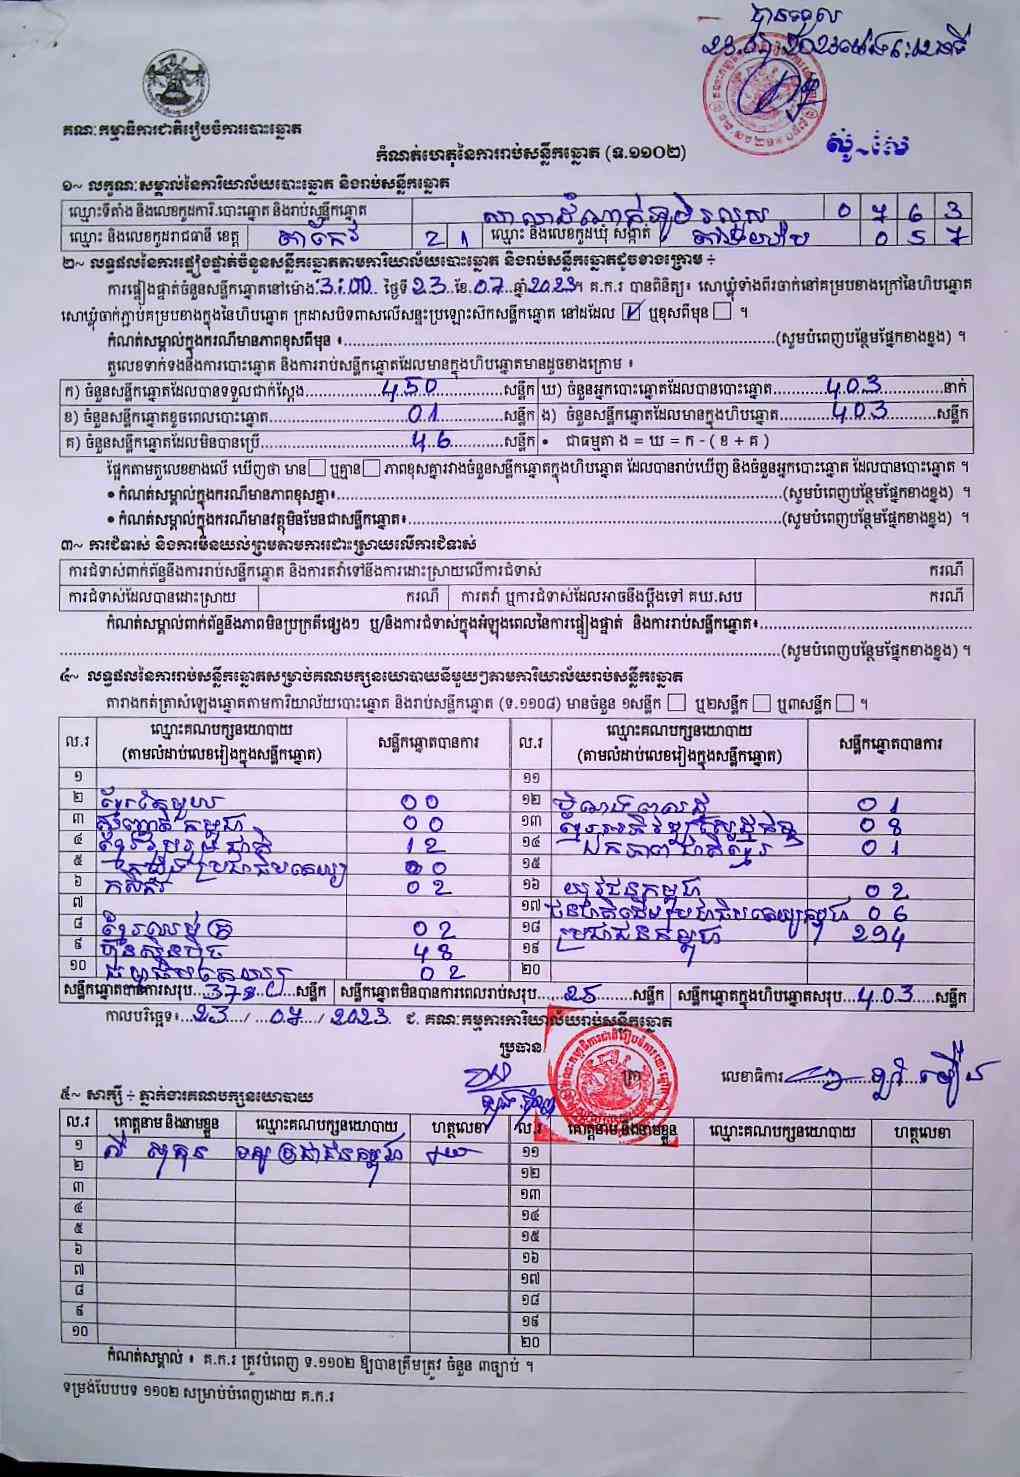 បានទទួល
គណៈកម្មាធិការជាតិរៀបចំការបោះឆ្នោត
កំណត់ហេតុនៃការរាប់សន្លឹកឆ្នោត (ទ.១១០២)
១~ លក្ខណៈសម្គាល់នៃការិយាល័យបោះឆ្នោត និងរាប់សន្លឹកឆ្នោត
ឈ្មោះទីតាំង និងលេខកូដការិ.បោះឆ្នោត និងរាប់សន្លឹកឆ្នោត សាលាដំណាក់ភូមិរលួស 0 7 6 3
ឈ្មោះ និងលេខកូដរាជធានី ខេត្ត តាកែវ 2 1 ឈ្មោះ និងលេខកូដឃុំ សង្កាត់ 0 5 7
២~ លទ្ធផលនៃការផ្ទៀងផ្ទាត់ចំនួនសន្លឹកឆ្នោតតាមការិយាល័យបោះឆ្នោត និងរាប់សន្លឹកឆ្នោតដូចខាងក្រោម ÷
ការផ្ទៀងផ្ទាត់ចំនួនសន្លឹកឆ្នោតនៅម៉ោង 3:00 ថ្ងៃទី 23 ខែ 07 ឆ្នាំ 2023 ។ គ.ក.រ បានពិនិត្យ៖ សោឃ្លុំទាំងពីរចាក់នៅគម្របខាងក្រៅនៃហិបឆ្នោត
សោឃ្លុំចាក់ភ្ជាប់គម្របខាងក្នុងនៃហិបឆ្នោត ក្រដាសបិទពាសលើសន្ទះប្រឡោះស៊កសន្លឹកឆ្នោត នៅដដែល ☑ ឬខុសពីមុន ☐ ។
កំណត់សម្គាល់ក្នុងករណីមានភាពខុសពីមុន ៖ (សូមបំពេញបន្ថែមផ្នែកខាងខ្នង) ។
តួលេខទាក់ទងនឹងការបោះឆ្នោត និងការរាប់សន្លឹកឆ្នោតដែលមានក្នុងហិបឆ្នោតមានដូចខាងក្រោម ៖
ក) ចំនួនសន្លឹកឆ្នោតដែលបានទទួលជាក់ស្តែង 450 សន្លឹក ឃ) ចំនួនអ្នកបោះឆ្នោតដែលបានបោះឆ្នោត 403 នាក់
ខ) ចំនួនសន្លឹកឆ្នោតខូចពេលបោះឆ្នោត 01 សន្លឹក ង) ចំនួនសន្លឹកឆ្នោតដែលមានក្នុងហិបឆ្នោត 403 សន្លឹក
គ) ចំនួនសន្លឹកឆ្នោតដែលមិនបានប្រើ 46 សន្លឹក • ជាធម្មតា ង = ឃ = ក - ( ខ + គ )
ផ្អែកតាមតួលេខខាងលើ ឃើញថា មាន ☐ ឬគ្មាន ☐ ភាពខុសគ្នារវាងចំនួនសន្លឹកឆ្នោតក្នុងហិបឆ្នោត ដែលបានរាប់ឃើញ និងចំនួនអ្នកបោះឆ្នោត ដែលបានបោះឆ្នោត ។
• កំណត់សម្គាល់ក្នុងករណីមានភាពខុសគ្នា៖ (សូមបំពេញបន្ថែមផ្នែកខាងខ្នង) ។
• កំណត់សម្គាល់ក្នុងករណីមានវត្ថុមិនមែនជាសន្លឹកឆ្នោត៖ (សូមបំពេញបន្ថែមផ្នែកខាងខ្នង) ។
៣~ ការជំទាស់ និងការមិនយល់ព្រមតាមការដោះស្រាយលើការជំទាស់
ការជំទាស់ពាក់ព័ន្ធនឹងការរាប់សន្លឹកឆ្នោត និងការតវ៉ាទៅនឹងការដោះស្រាយលើការជំទាស់ ករណី
ការជំទាស់ដែលបានដោះស្រាយ ករណី ការតវ៉ា ឬការជំទាស់ដែលអាចនឹងប្តឹងទៅ គឃ.សប ករណី
កំណត់សម្គាល់ពាក់ព័ន្ធនឹងភាពមិនប្រក្រតីផ្សេងៗ ឬ/និងការជំទាស់ក្នុងអំឡុងពេលនៃការផ្ទៀងផ្ទាត់ និងការរាប់សន្លឹកឆ្នោត៖
(សូមបំពេញបន្ថែមផ្នែកខាងខ្នង) ។
៤~ លទ្ធផលនៃការរាប់សន្លឹកឆ្នោតសម្រាប់គណបក្សនយោបាយនីមួយៗតាមការិយាល័យរាប់សន្លឹកឆ្នោត
តារាងកត់ត្រាសំឡេងឆ្នោតតាមការិយាល័យបោះឆ្នោត និងរាប់សន្លឹកឆ្នោត (ទ.១១០៨) មានចំនួន ១សន្លឹក ☐ ឬ២សន្លឹក ☐ ឬ៣សន្លឹក ☐ ។
ល.រ ឈ្មោះគណបក្សនយោបាយ (តាមលំដាប់លេខរៀងក្នុងសន្លឹកឆ្នោត) សន្លឹកឆ្នោតបានការ ល.រ ឈ្មោះគណបក្សនយោបាយ (តាមលំដាប់លេខរៀងក្នុងសន្លឹកឆ្នោត) សន្លឹកឆ្នោតបានការ
១ ១១
២ ខ្មែរតែមួយ 00 ១២ 01
៣ កម្ពុជា 00 ១៣ 08
៤ ខ្មែររួបរួមជាតិ 12 ១៤ ឯកភាពជាតិខ្មែរ 01
៥ ប្រជាធិបតេយ្យ 00 ១៥
៦ កសិករ 02 ១៦ យុវជនកម្ពុជា 02
៧ ១៧ 06
៨ ខ្មែរឈប់ក្រ 02 ១៨ ប្រជាជនកម្ពុជា 294
៩ ហ៊្វុនស៊ិនប៉ិច 48 ១៩
១០ 02 ២០
សន្លឹកឆ្នោតបានការសរុប 378 សន្លឹក សន្លឹកឆ្នោតមិនបានការពេលរាប់សរុប 25 សន្លឹក សន្លឹកឆ្នោតក្នុងហិបឆ្នោតសរុប 403 សន្លឹក
កាលបរិច្ឆេទ៖ 23 / 07 / 2023 ជ. គណៈកម្មការការិយាល័យរាប់សន្លឹកឆ្នោត
ប្រធាន
លេខាធិការ
៥~ សាក្សី ÷ ភ្នាក់ងារគណបក្សនយោបាយ
ល.រ គោត្តនាម និងនាមខ្លួន ឈ្មោះគណបក្សនយោបាយ ហត្ថលេខា ល.រ គោត្តនាម និងនាមខ្លួន ឈ្មោះគណបក្សនយោបាយ ហត្ថលេខា
១ ប្រជាជនកម្ពុជា ១១
២ ១២
៣ ១៣
៤ ១៤
៥ ១៥
៦ ១៦
៧ ១៧
៨ ១៨
៩ ១៩
១០ ២០
កំណត់សម្គាល់ ៖ គ.ក.រ ត្រូវបំពេញ ទ.១១០២ ឱ្យបានត្រឹមត្រូវ ចំនួន ៣ច្បាប់ ។
ទម្រង់បែបបទ ១១០២ សម្រាប់បំពេញដោយ គ.ក.រ